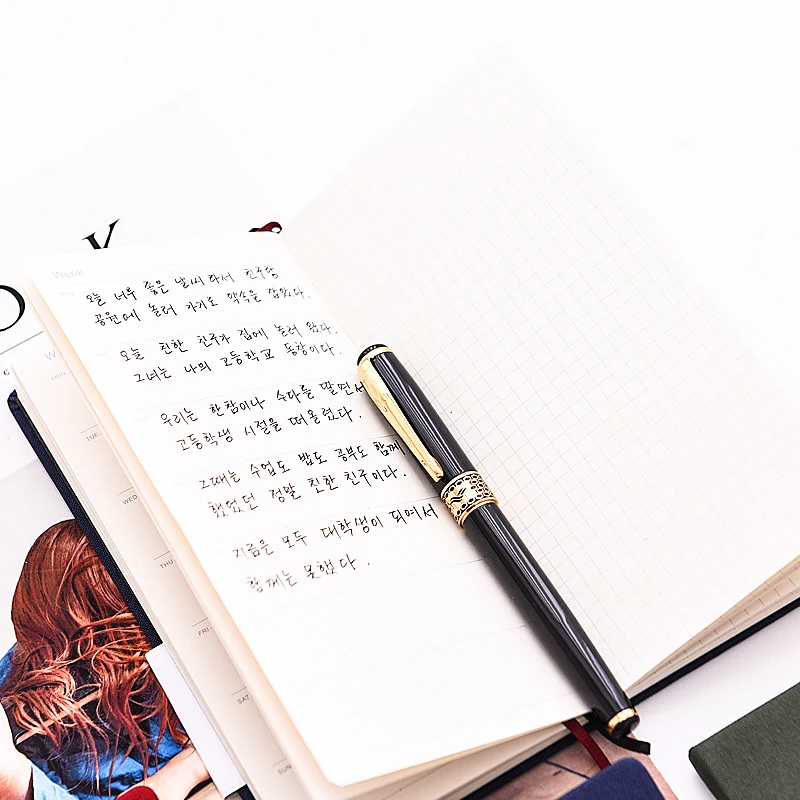 K
O
Week
오늘 너무 좋은 날씨라서 친구랑
공원에 놀러 가기로 약속을 잡았다.
오늘 친한 친구가 집에 놀러 왔다.
그녀는 나의 고등학교 동창이다.
우리는 한참이나 수다를 떨면서
고등학생 시절을 떠올렸다.
그때는 수업도 밥도 공부도 함께
했었던 정말 친한 친구이다.
지금은 모두 대학생이 되어서
함께는 못했다.
W
MON
TUE
WED
THU
FRI
SAT
SUN